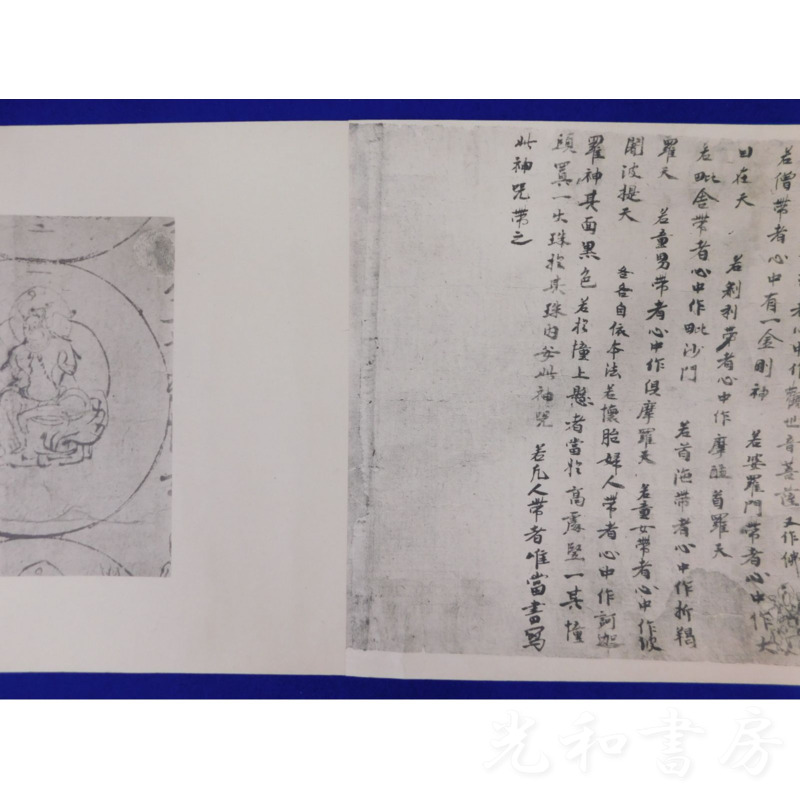 者心中作觀世音菩薩 又作佛
若僧帶者心中有一金剛神 若婆羅門帶者心中作大
自在天 若剎利帶者心中作摩醯首羅天
若毗舍帶者心中作毗沙門 若首陁帶者心中作斫羯
羅天 若童男帶者心中作俱摩羅天 若童女帶者心中作波
闍波提天 各各自依本法若懷胎婦人帶者心中作訶迦
羅神其面黑色 若於幢上懸者當於高處竪一其幢
頭置一火珠於其珠內安此神咒 若凡人帶者唯當書寫
此神咒帶之
光和書房